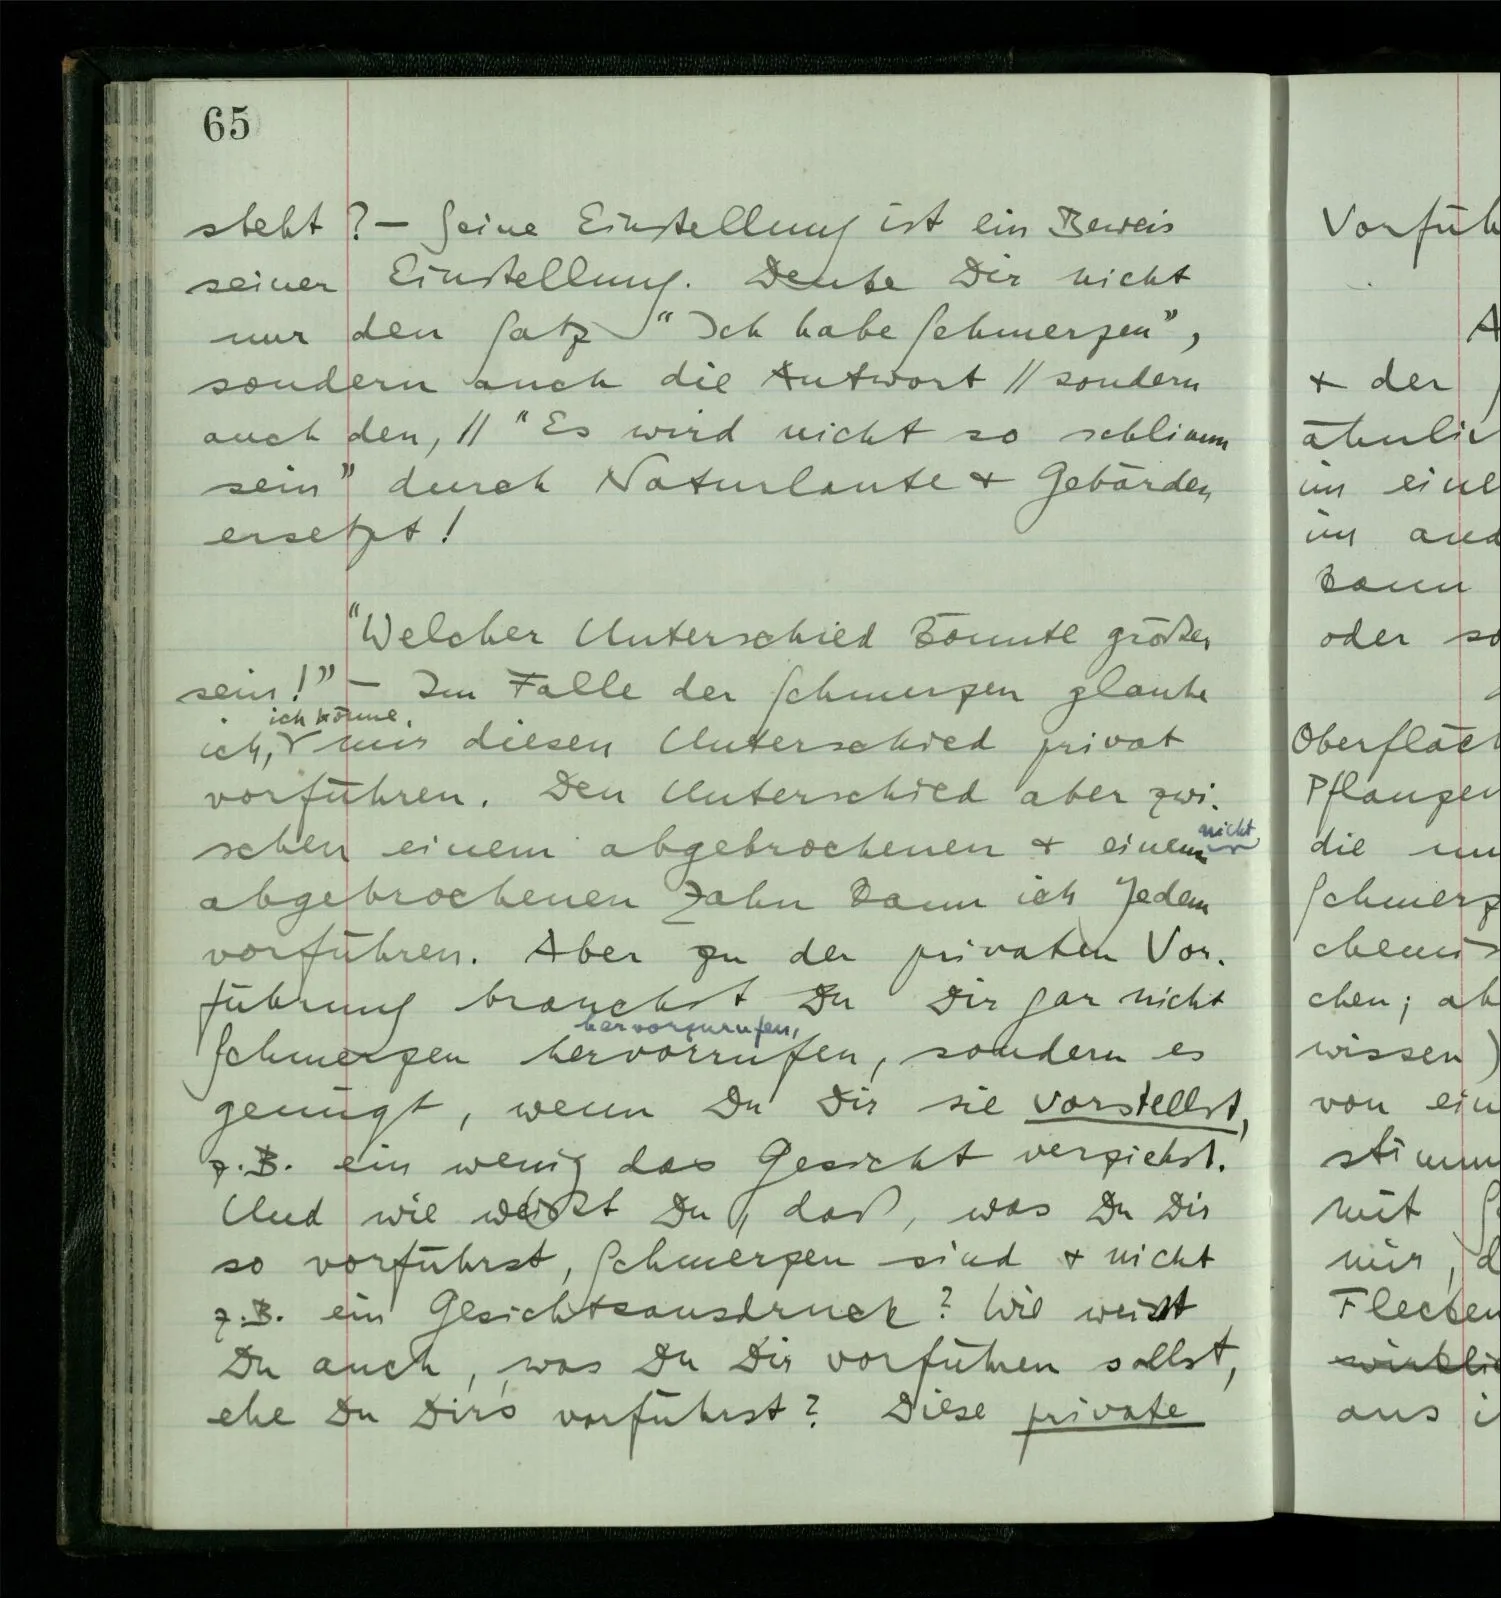 65
steht? – Seine Einstellung ist ein Beweis
seiner Einstellung. Denke Dir nicht
nur den Satz “Ich habe Schmerzen”,
sondern auch die Antwort // sondern
auch den, // “Es wird nicht so schlimm
sein” durch Naturlaute & Gebärden
ersetzt!
“Welcher Unterschied könnte größer
sein!” – Im Falle der Schmerzen glaube
ich könne,
ich, mir diesen Unterschied privat
vorführen. Den Unterschied aber zwi-
nicht
schen einem abgebrochenen & einem
abgebrochenen Zahn kann ich Jedem
vorführen. Aber zu der privaten Vor-
führung brauchst Du Dir gar nicht
hervorzurufen,
Schmerzen hervorrufen, sondern es
genügt, wenn Du Dir sie vorstellst,
z.B. ein wenig das Gesicht verziehst.
Und wie weißt Du, daß, was Du Dir
so vorführst, Schmerzen sind & nicht
z.B. ein Gesichtsausdruck? Wie weißt
Du auch, was Du Dir vorführen sollst,
ehe Du Dir's vorführst? Diese private
Vorfüh
A
& der
ähnli
im eine
im and
kann
oder so
Oberfläch
Pflanzen
die un
Schmerz
chen; ab
wissen)
von ein
stimm
mit
mir, d
Flecken
wirklic
aus i